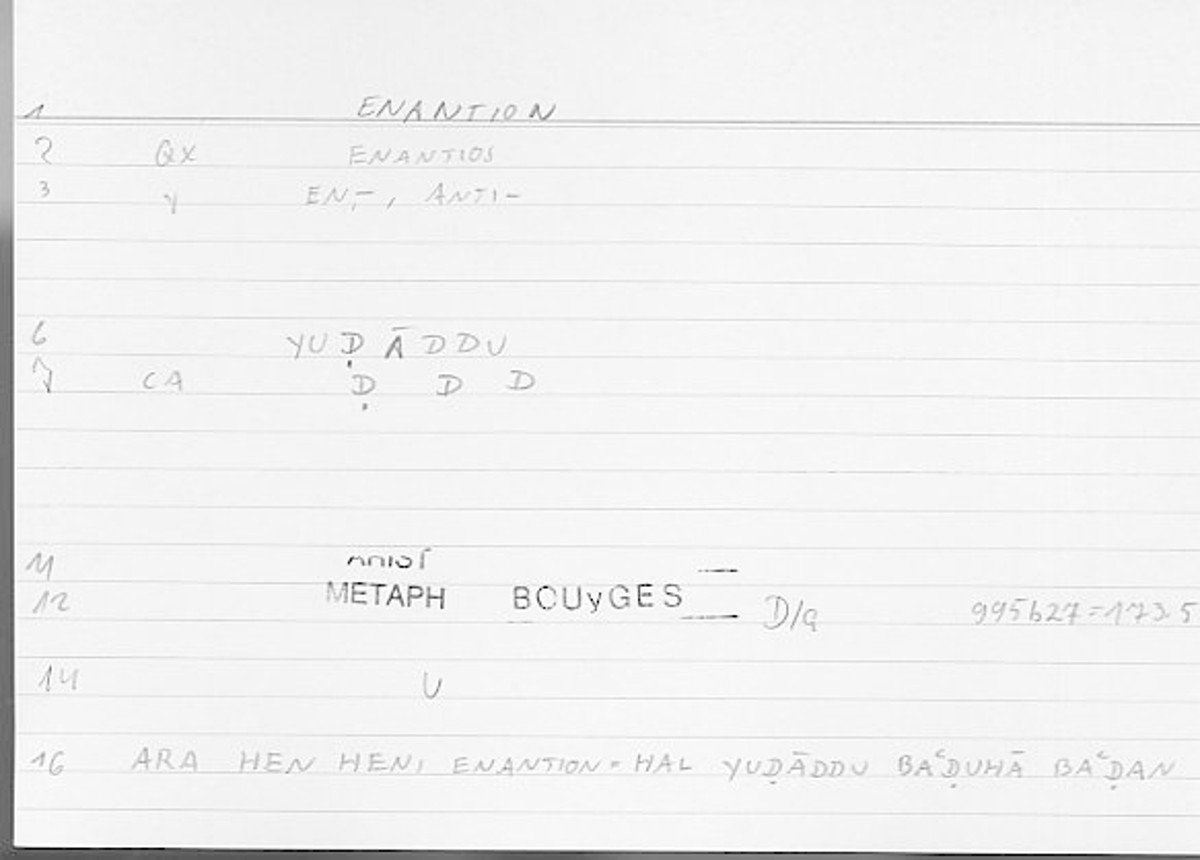 1 ENANTION
2 QX ENANTIOS
3 y EN,-, ANTI-
6 YUḌĀDDU
7 CA Ḍ D D
11
12 METAPH BOUyGES D/a 995b27=173.5
14 U
16 ARA HEN HENI ENANTION = HAL YUḌĀDDU BAʿḌUHĀ BAʿḌAN